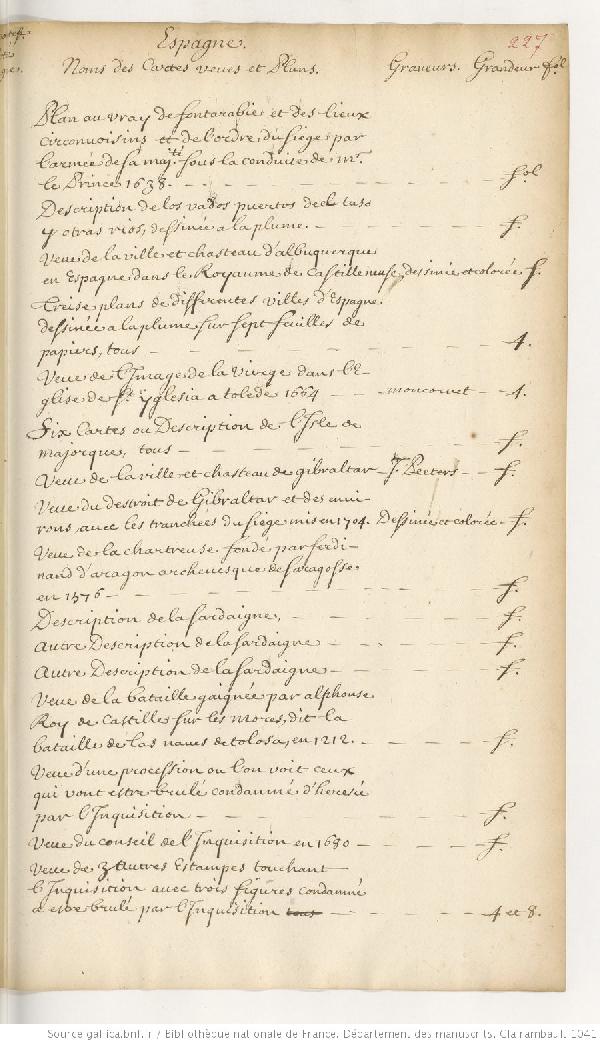 Espagne. 227
Noms des Cartes veues et Plans. Graveurs. Grandeur fol
Plan au vray de fontarabie et des lieux
circonvoisins et de l'ordre du siege par
l'armée de sa maj.té sous la conduite de mr.
le Prince 1638. - - - - - - fol
Description de los vados puertos del taso
y otras rios, dessinée a la plume. - - - - f.
Veue de la ville et chasteau d'albuquerque
en Espagne dans le Royaume de Castille neufe, dessinée et colorée f.
treise plans de differentes villes d'Espagne
dessinée a la plume sur sept feuilles de
papiers, tous - - - - - - 4.
Veue de l'Image de la Vierge dans l'E-
glise de St. yglesia a tolede 1664 - - moncornet - 4.
Six Cartes ou Description de l'Isle de
majorque, tous - - - - - - f.
Veue de la ville et chasteau de gibraltar - J. Peeters - - f.
Veue du destroit de Gibraltar et des envi-
rons, avec les tranchées du siege mis en 1704. Dessinée et colorée - f.
Veue de la chartreuse fondé par ferdi-
nand d'aragon archevesque de saragosse
en 1576 - - - - - - f.
Description de la sardaigne, - - - - - f.
autre Description de la sardaigne - - - - f.
Autre Description de la sardaigne - - - - f.
Veue de la bataille gaignée par alphonse
Roy de Castille sur les mores, dit la
bataille de las naves de tolosa, en 1212. - - - - f.
Veue d'une procession ou l'on voit ceux
qui vont estre brulé condamné d'heresie
par l'Inquisition - - - - - - f.
Veue du conseil de l'Inquisition en 1680 - - - - f.
Veue de 3 Autres Estampes touchant
l'Inquisition avec trois figures condamné
a estre brulé par l'Inquisition tous - - - - 4 et 8.
Source gallica.bnf.fr / Bibliothèque nationale de France. Département des manuscrits. Clairambault 1041